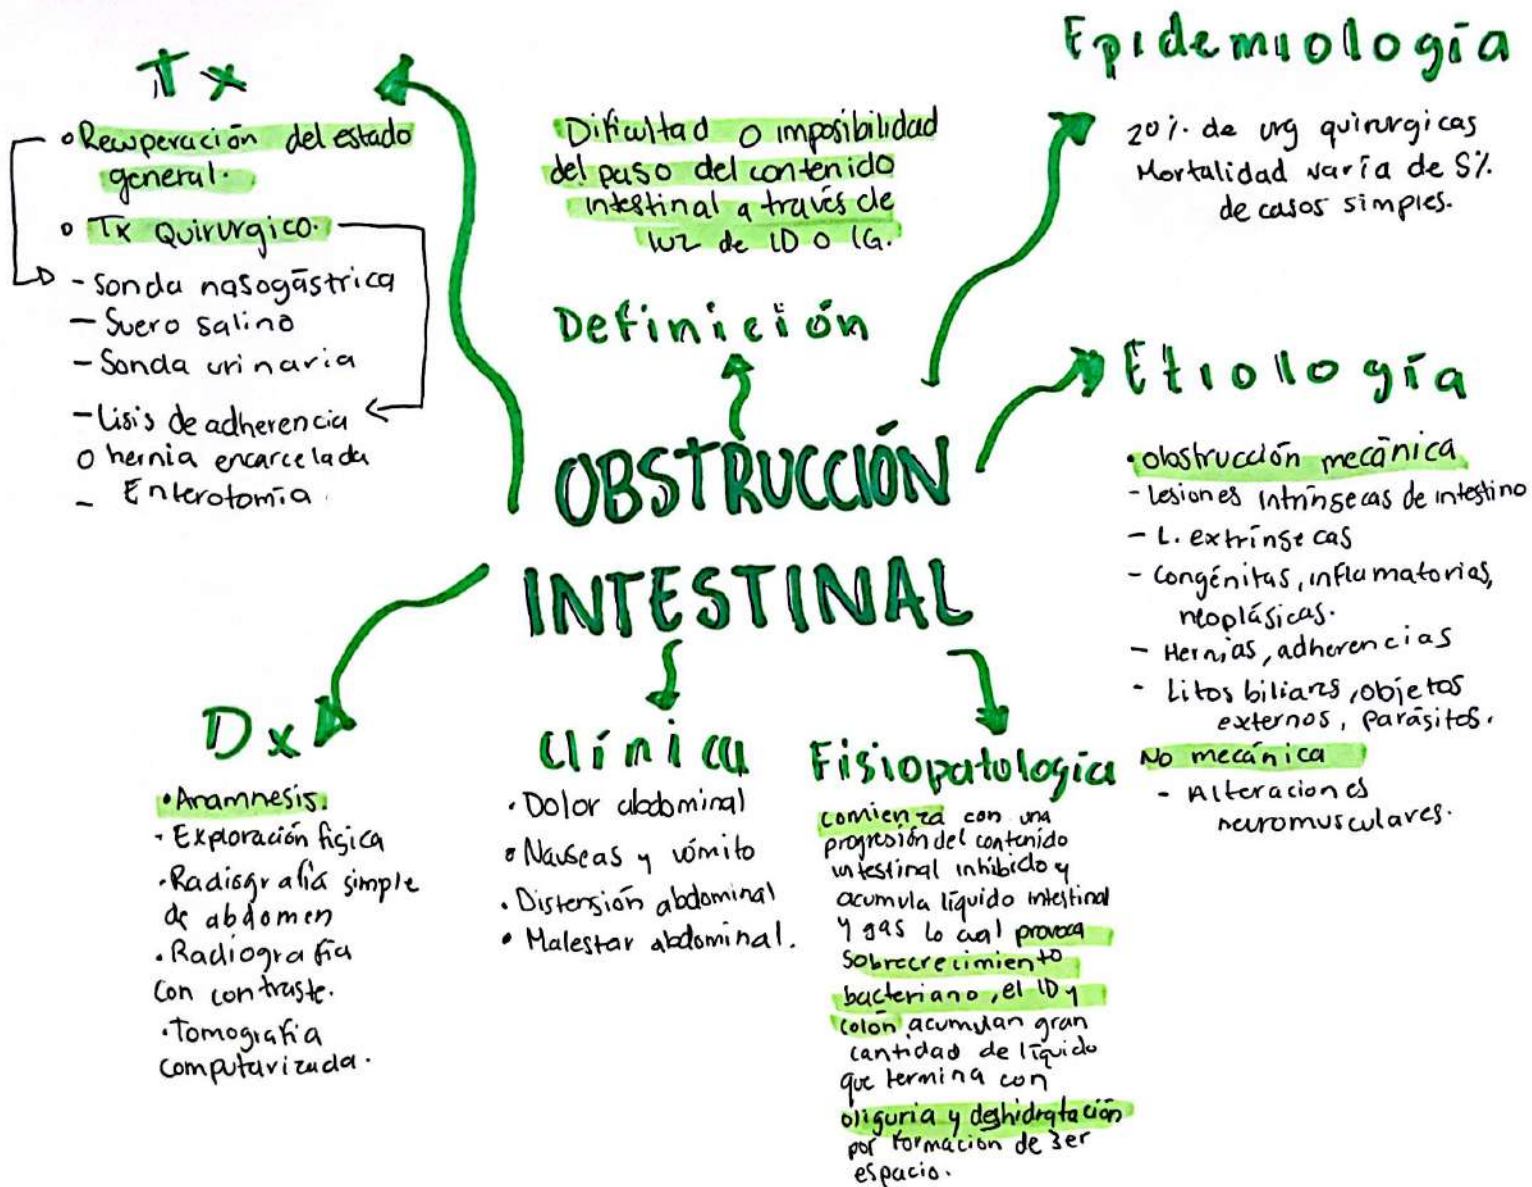 Tx
• Recuperación del estado
general.
• Tx Quirurgico.
- Sonda nasogástrica
- Suero salino
- Sonda urinaria
- Lisis de adherencia
o hernia encarcelada
- Enterotomía.
Dificultad o imposibilidad
del paso del contenido
intestinal a través de
luz de ID o IG.
Definición
Epidemiología
20% de urg quirurgicas
Mortalidad varía de 5%
de casos simples.
Etiología
• obstrucción mecánica
- Lesiones intrínsecas de intestino
- L. extrínsecas
- Congénitas, inflamatorias,
neoplásicas.
- Hernias, adherencias
- Litos biliares, objetos
externos, parásitos.
No mecánica
- Alteraciones
neuromusculares.
OBSTRUCCIÓN
INTESTINAL
Dx
• Anamnesis.
• Exploración física
• Radiografía simple
de abdomen
• Radiografía
con contraste.
• Tomografía
computarizada.
Clínica
• Dolor abdominal
• Nauseas y vómito
• Distensión abdominal
• Malestar abdominal.
Fisiopatología
comienza con una
progresión del contenido
intestinal inhibido y
acumula líquido intestinal
y gas lo cual provoca
sobrecrecimiento
bacteriano, el ID y
colón acumulan gran
cantidad de líquido
que termina con
oliguria y deshidratación
por formación de 3er
espacio.